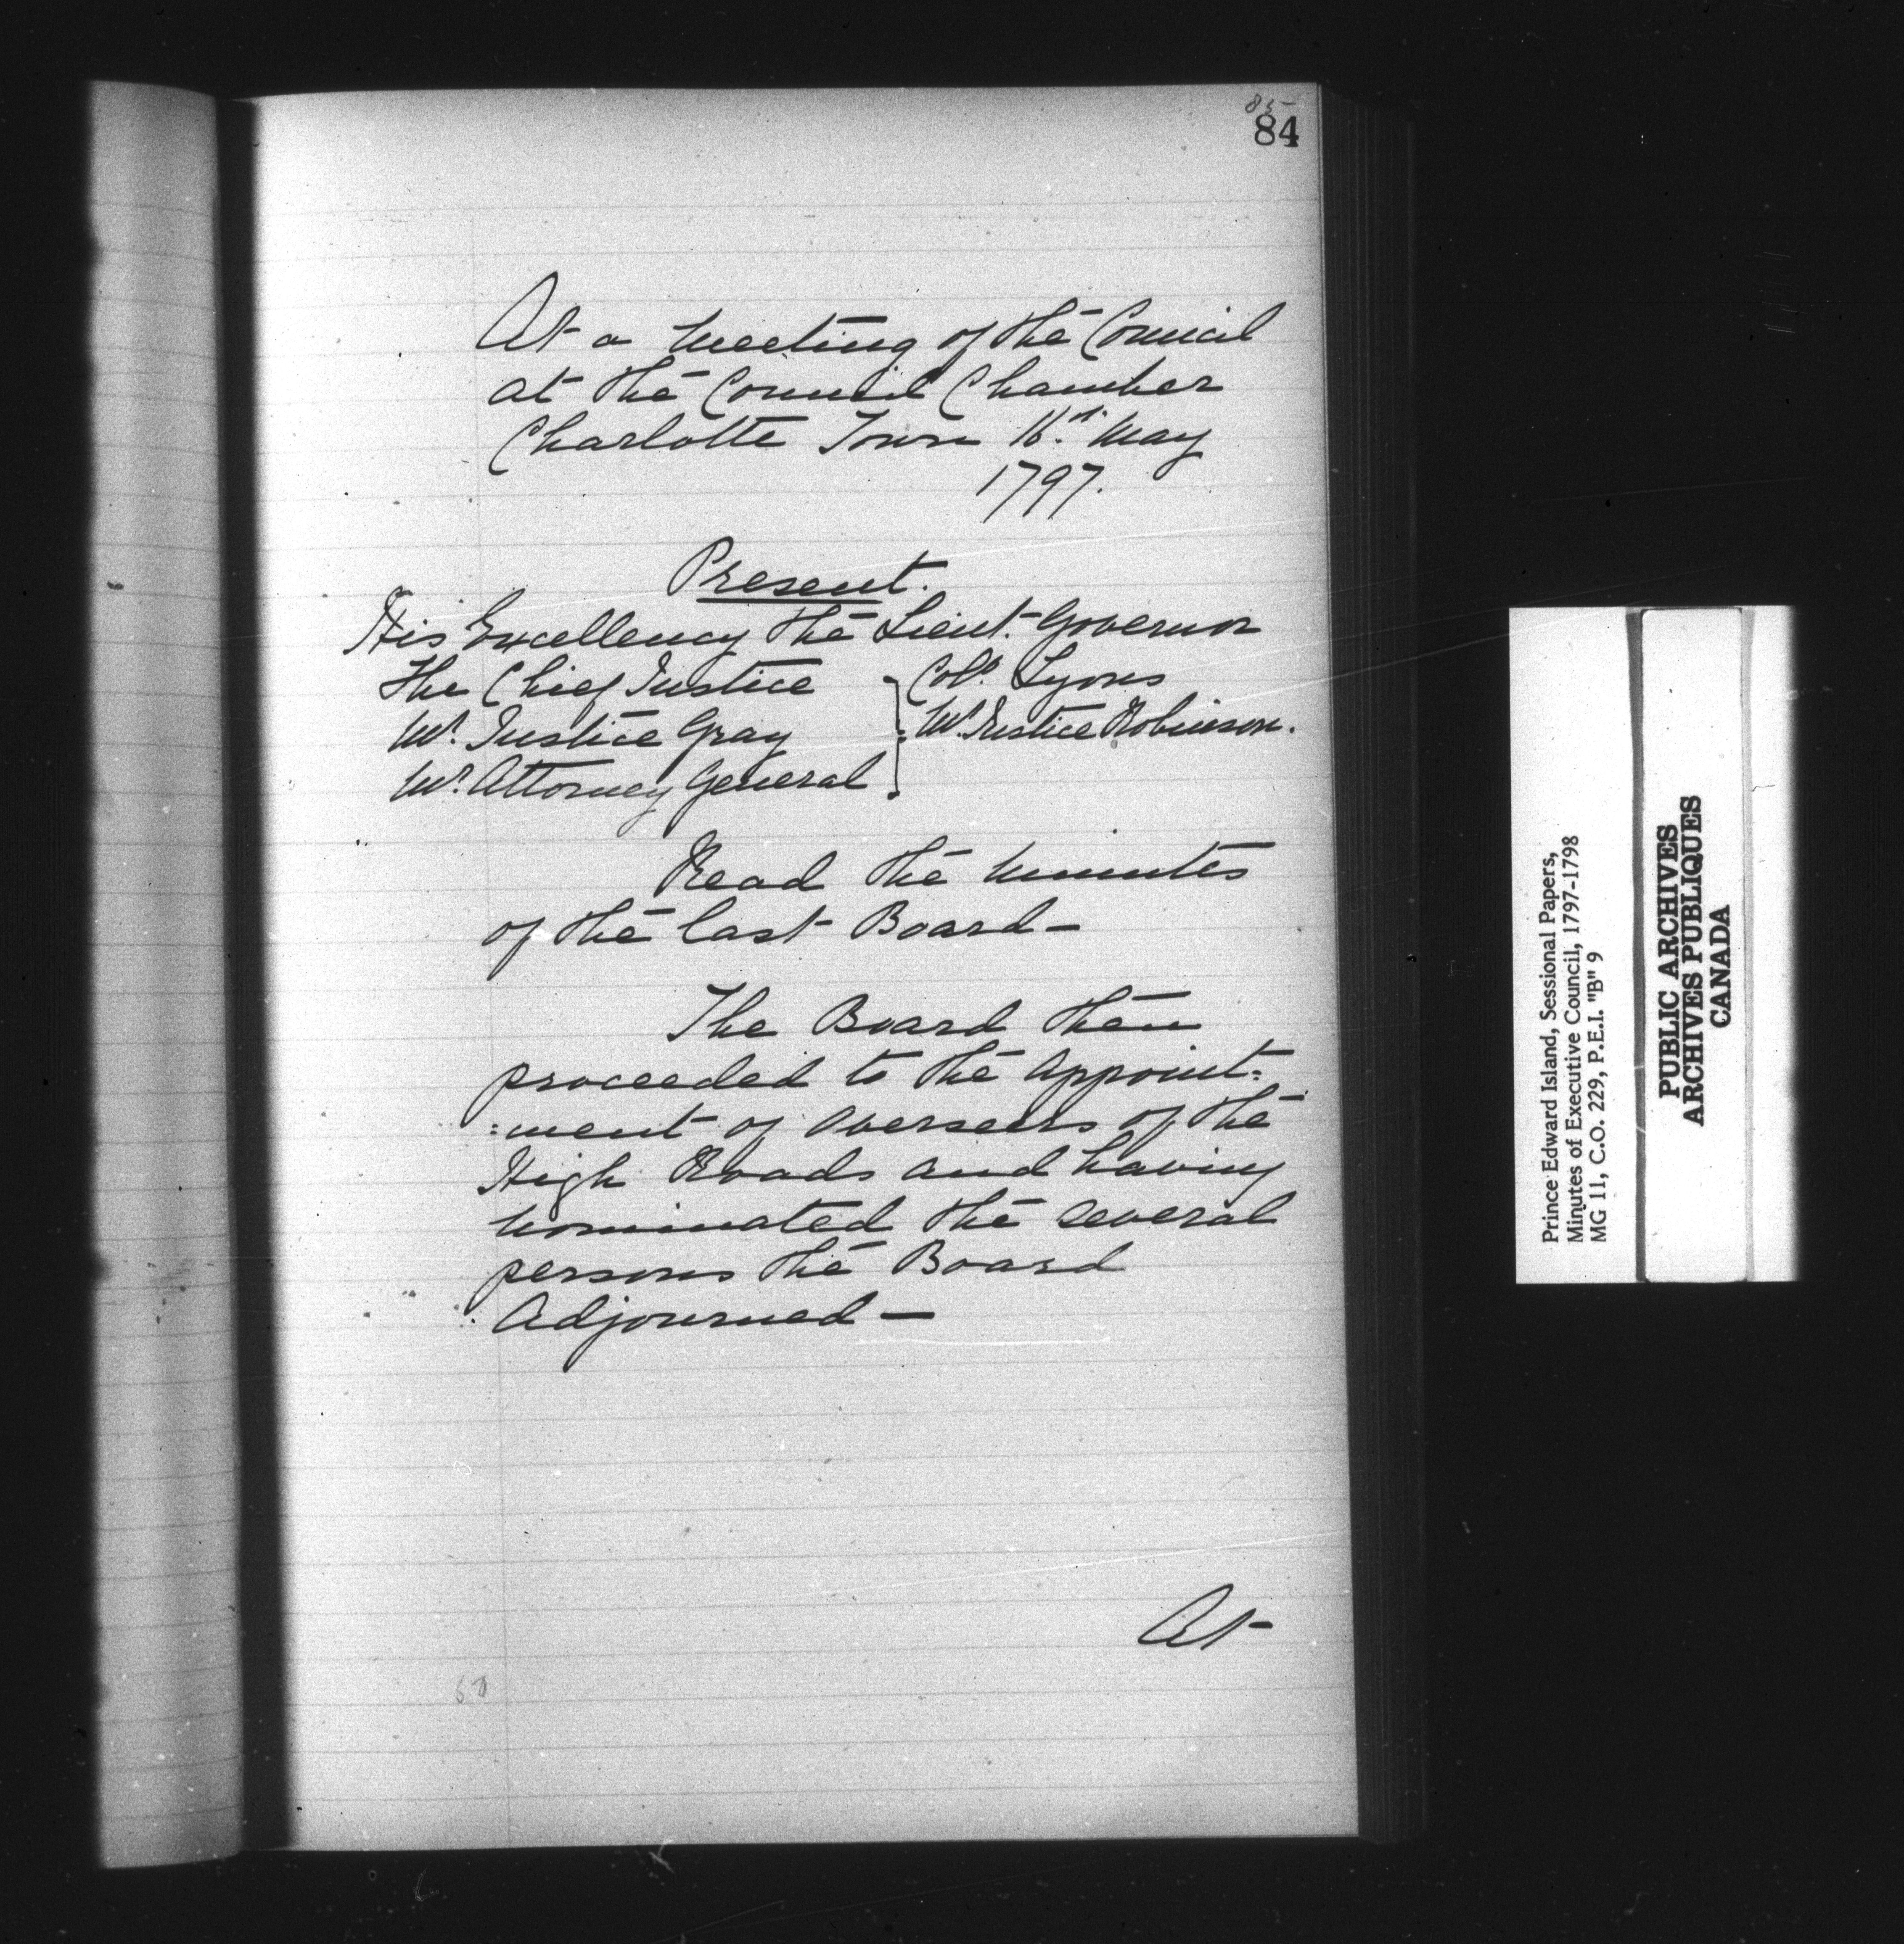 85
84
At a Meeting of the Council
at the Council Chamber
Charlotte Town 16th. May
1797.
Present.
His Excellency the Lieut. Governor
The Chief Justice
Mr. Justice Gray
Mr. Attorney General
Coll. Lyons
Mr. Justice Robinson.
Read the Minutes
of the last Board—
The Board then
proceeded to the appoint=
=ment of overseers of the
High Roads and having
nominated the several
persons the Board
Adjourned—
At
Prince Edward Island, Sessional Papers,
Minutes of Executive Council, 1797-1798
MG 11, C.O. 229, P.E.I. "B" 9
PUBLIC ARCHIVES
ARCHIVES PUBLIQUES
CANADA